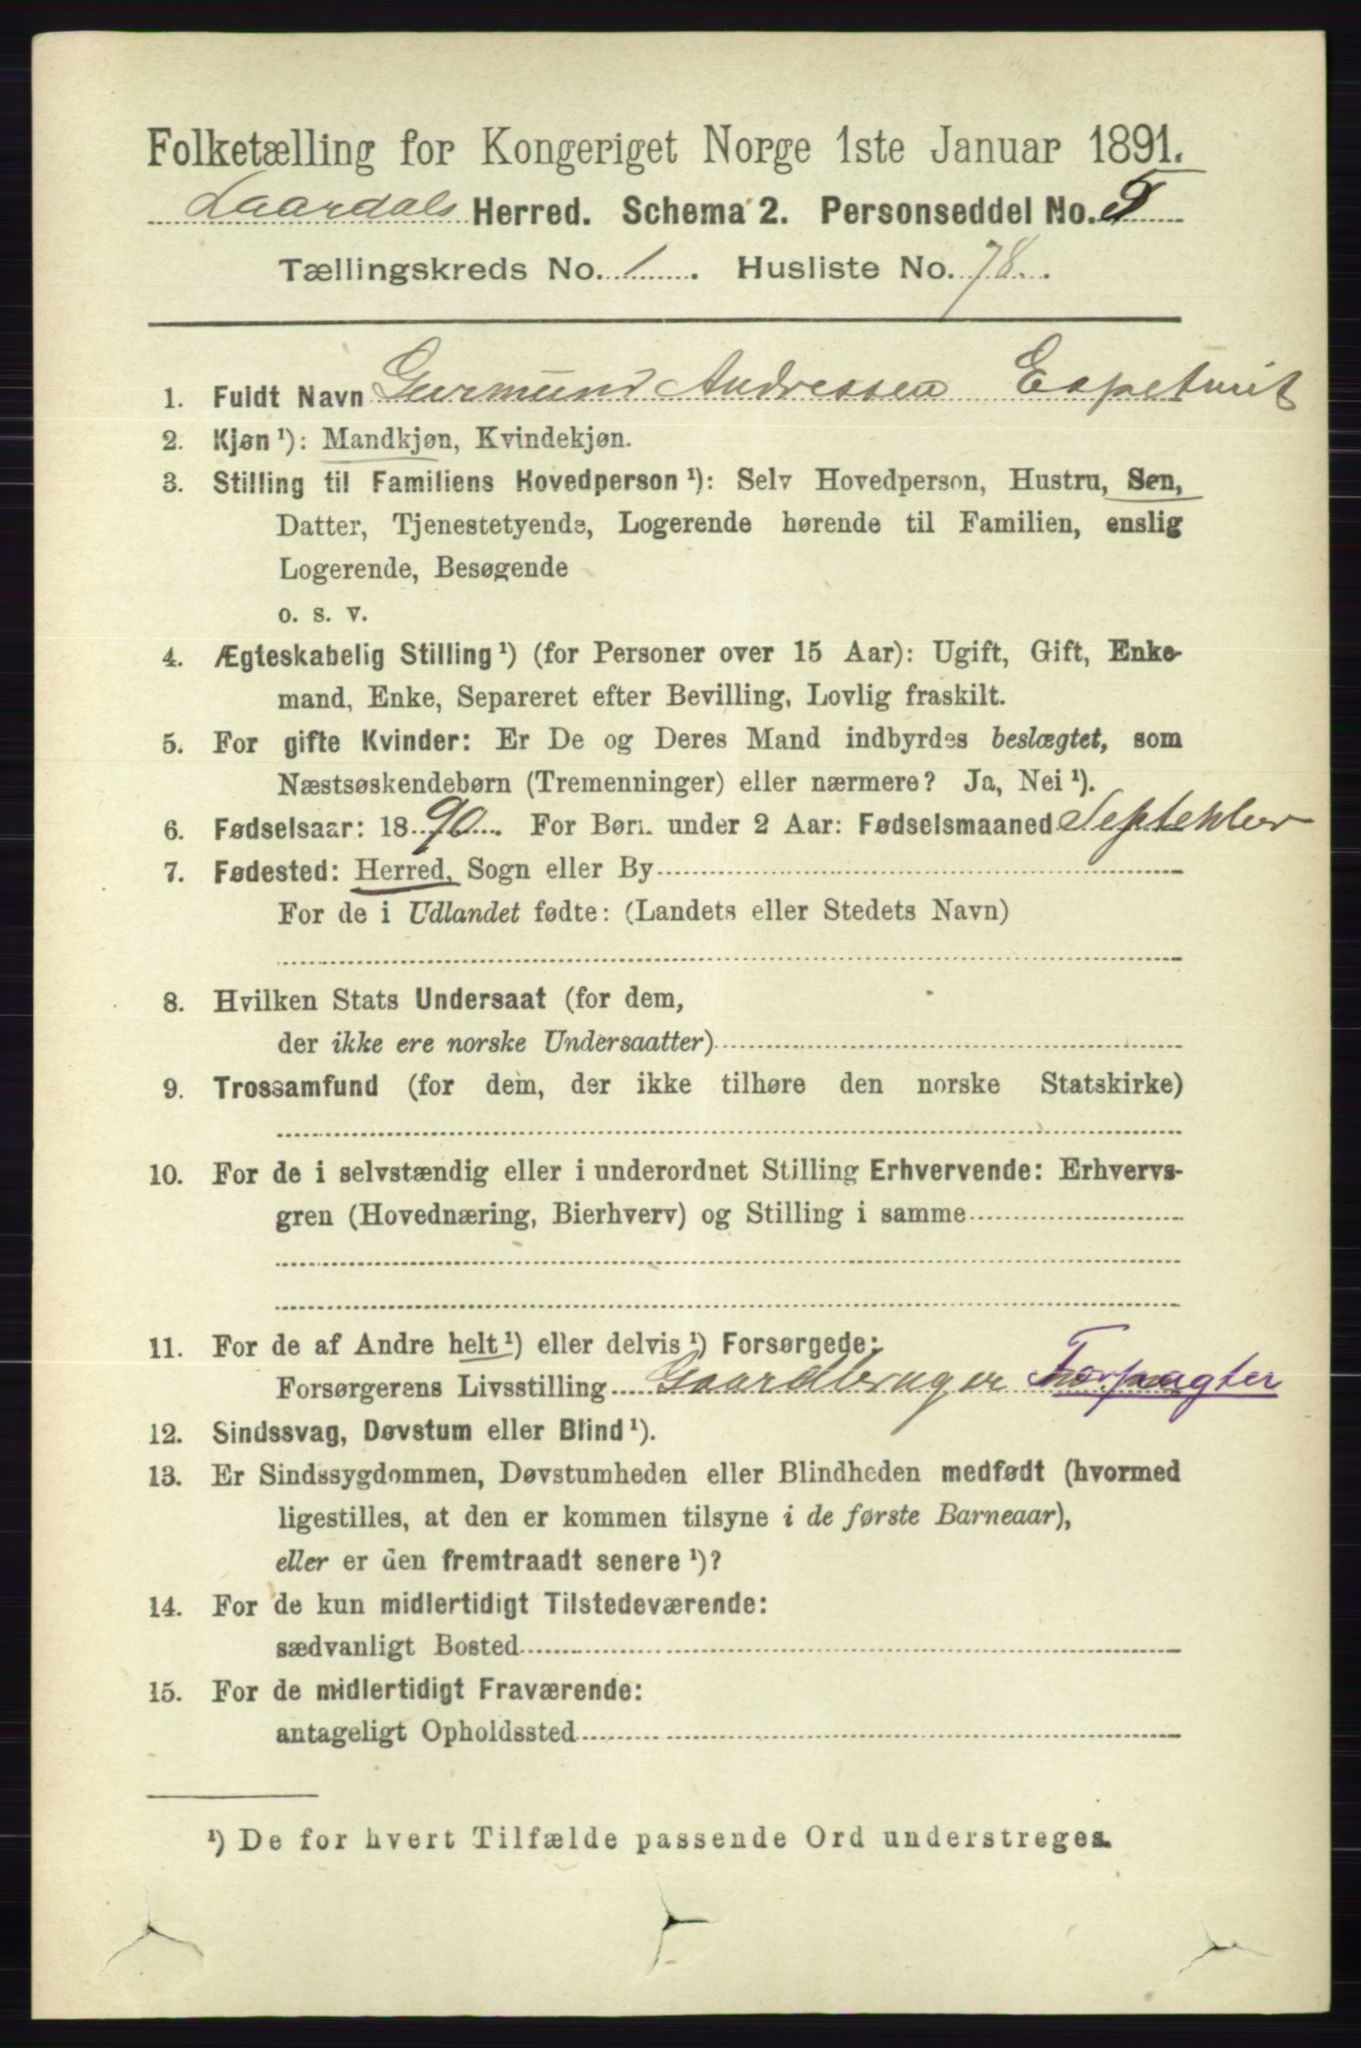 Folketælling for Kongeriget Norge 1ste Januar 1891.
Laardals Herred. Schema 2. Personseddel No. 5
Tællingskreds No. 1. Husliste No. 78.
1. Fuldt Navn Guumund Andressen Espetveit
2. Kjøn ¹): Mandkjøn, Kvindekjøn.
3. Stilling til Familiens Hovedperson ¹): Selv Hovedperson, Hustru, Søn,
Datter, Tjenestetyende, Logerende hørende til Familien, enslig
Logerende, Besøgende
o. s. v.
4. Ægteskabelig Stilling ¹) (for Personer over 15 Aar): Ugift, Gift, Enke-
mand, Enke, Separeret efter Bevilling, Lovlig fraskilt.
5. For gifte Kvinder: Er De og Deres Mand indbyrdes beslægtet, som
Næstsøskendebørn (Tremenninger) eller nærmere? Ja, Nei ¹).
6. Fødselsaar: 1890. For Børn under 2 Aar: Fødselsmaaned September
7. Fødested: Herred, Sogn eller By
For de i Udlandet fødte: (Landets eller Stedets Navn)
8. Hvilken Stats Undersaat (for dem,
der ikke ere norske Undersaatter)
9. Trossamfund (for dem, der ikke tilhøre den norske Statskirke)
10. For de i selvstændig eller i underordnet Stilling Erhvervende: Erhvervs-
gren (Hovednæring, Bierhverv) og Stilling i samme
11. For de af Andre helt ¹) eller delvis ¹) Forsørgede:
Forsørgerens Livsstilling Gaardbruger Forpagter
12. Sindssvag, Døvstum eller Blind ¹).
13. Er Sindssygdommen, Døvstumheden eller Blindheden medfødt (hvormed
ligestilles, at den er kommen tilsyne i de første Barneaar),
eller er den fremtraadt senere ¹)?
14. For de kun midlertidigt Tilstedeværende:
sædvanligt Bosted
15. For de midlertidigt Fraværende:
antageligt Opholdssted
¹) De for hvert Tilfælde passende Ord understreges.